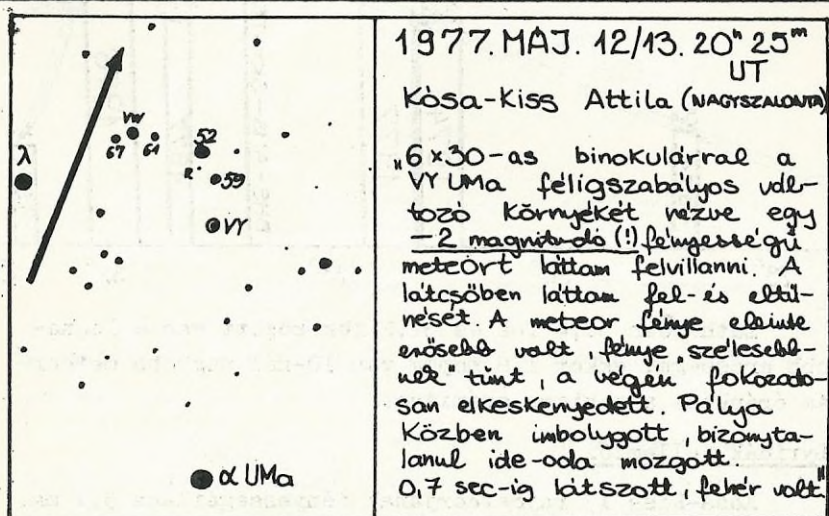 λ
VW
67
61
52
R
59
VY
α UMa
1977. MÁJ. 12/13. 20h 25m
UT
Kósa-Kiss Attila (NAGYSZALONTA)
"6×30-as binokulárral a
VY UMa féligszabályos vál-
tozó környékét nézve egy
-2 magnitudó (!) fényességű
meteórt láttam felvillanni. A
látcsőben láttam fel- és eltű-
nését. A meteor fénye eleinte
erősebb volt, fénye "szélesebb-
nek" tűnt, a végén fokozado-
san elkeskenyedett. Pálya
közben imbolygott, bizonyta-
lanul ide-oda mozgott.
0,7 sec-ig látszott, fehér volt."